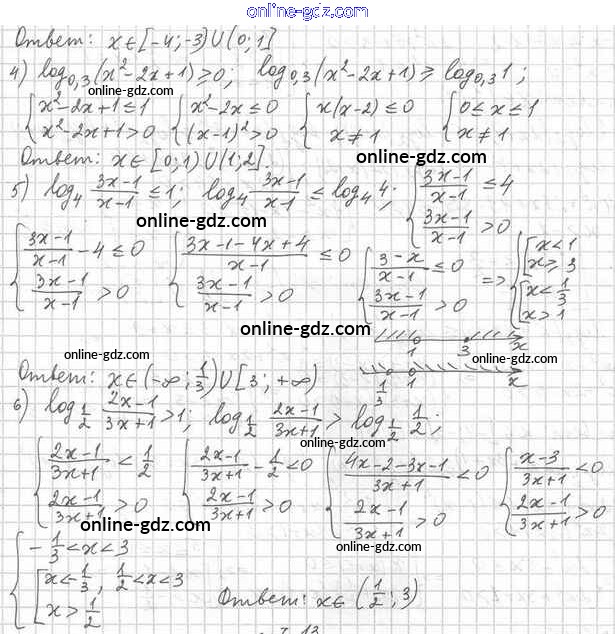 online-gdz.com
Ответ: x∈[-4;-3)∪(0;1]
online-gdz.com
4) log₀,₃(x²-2x+1)≥0; log₀,₃(x²-2x+1)≥log₀,₃1;
{x²-2x+1≤1 {x²-2x≤0 {x(x-2)≤0 {0≤x≤1
{x²-2x+1>0 {(x-1)²>0 {x≠1 {x≠1
Ответ: x∈[0;1)∪(1;2]. online-gdz.com
5) log₄ (3x-1)/(x-1) ≤1; log₄ (3x-1)/(x-1) ≤ log₄4; {(3x-1)/(x-1) ≤4
online-gdz.com {(3x-1)/(x-1) >0
{(3x-1)/(x-1) -4≤0 {(3x-1-4x+4)/(x-1) ≤0 {(3-x)/(x-1) ≤0 => {[x<1
[x≥3
{(3x-1)/(x-1) >0 {(3x-1)/(x-1) >0 {(3x-1)/(x-1) >0 {[x<1/3
[x>1
online-gdz.com
1 3 x
online-gdz.com online-gdz.com
Ответ: x∈(-∞;1/3)∪[3;+∞)
1/3 1 x
6) log₁/₂ (2x-1)/(3x+1) >1; log₁/₂ (2x-1)/(3x+1) > log₁/₂ 1/2;
online-gdz.com
{(2x-1)/(3x+1) < 1/2 {(2x-1)/(3x+1) - 1/2 <0 {(4x-2-3x-1)/(3x+1) <0 {(x-3)/(3x+1) <0
{(2x-1)/(3x+1) >0 {(2x-1)/(3x+1) >0 {(2x-1)/(3x+1) >0 {(2x-1)/(3x+1) >0
online-gdz.com
online-gdz.com
{-1/3<x<3
{[x<-1/3, 1/2<x<3
[x>1/2 Ответ: x∈(1/2;3)